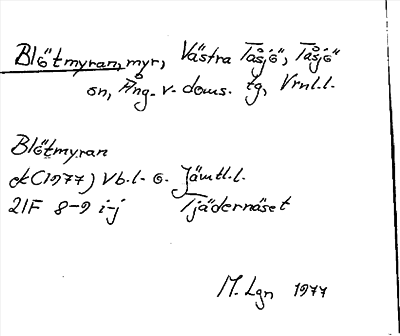 Blötmyran, myr, Västra Tåsjö, Tåsjö
sn, Ång. v. doms. tg, Vrnl.l.
Blötmyran
ek (1977) Vb.l. o. Jämtl.l.
21F 8-9 i-j Tjädernäset
M. Lgn 1977